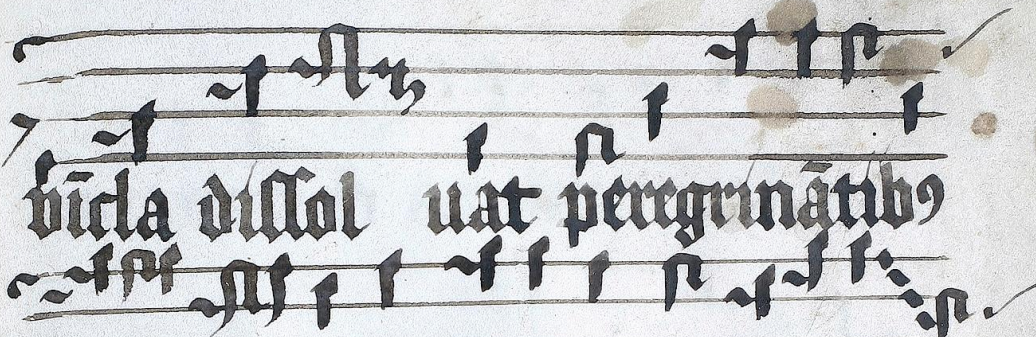 vīcla dissol uat peregrinātibꝰ